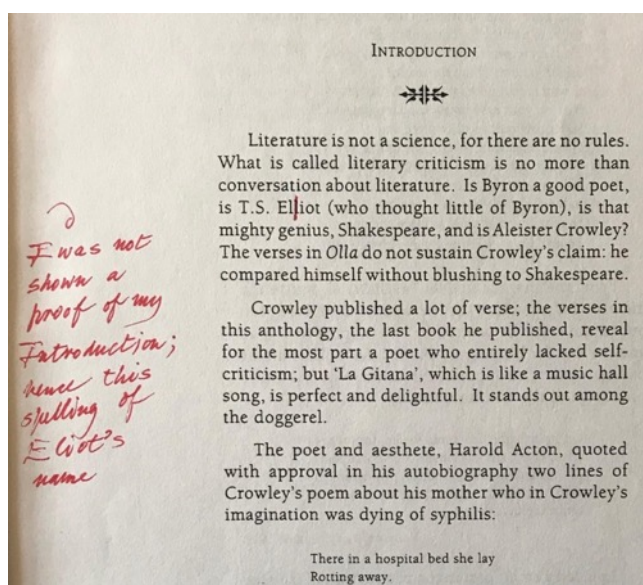 INTRODUCTION
Literature is not a science, for there are no rules.
What is called literary criticism is no more than
conversation about literature. Is Byron a good poet,
is T.S. Elliot (who thought little of Byron), is that
mighty genius, Shakespeare, and is Aleister Crowley?
The verses in Olla do not sustain Crowley's claim: he
compared himself without blushing to Shakespeare.
Crowley published a lot of verse; the verses in
this anthology, the last book he published, reveal
for the most part a poet who entirely lacked self-
criticism; but 'La Gitana', which is like a music hall
song, is perfect and delightful. It stands out among
the doggerel.
The poet and aesthete, Harold Acton, quoted
with approval in his autobiography two lines of
Crowley's poem about his mother who in Crowley's
imagination was dying of syphilis:
There in a hospital bed she lay
Rotting away.
I was not
shown a
proof of my
Introduction;
hence this
spelling of
Eliot's
name